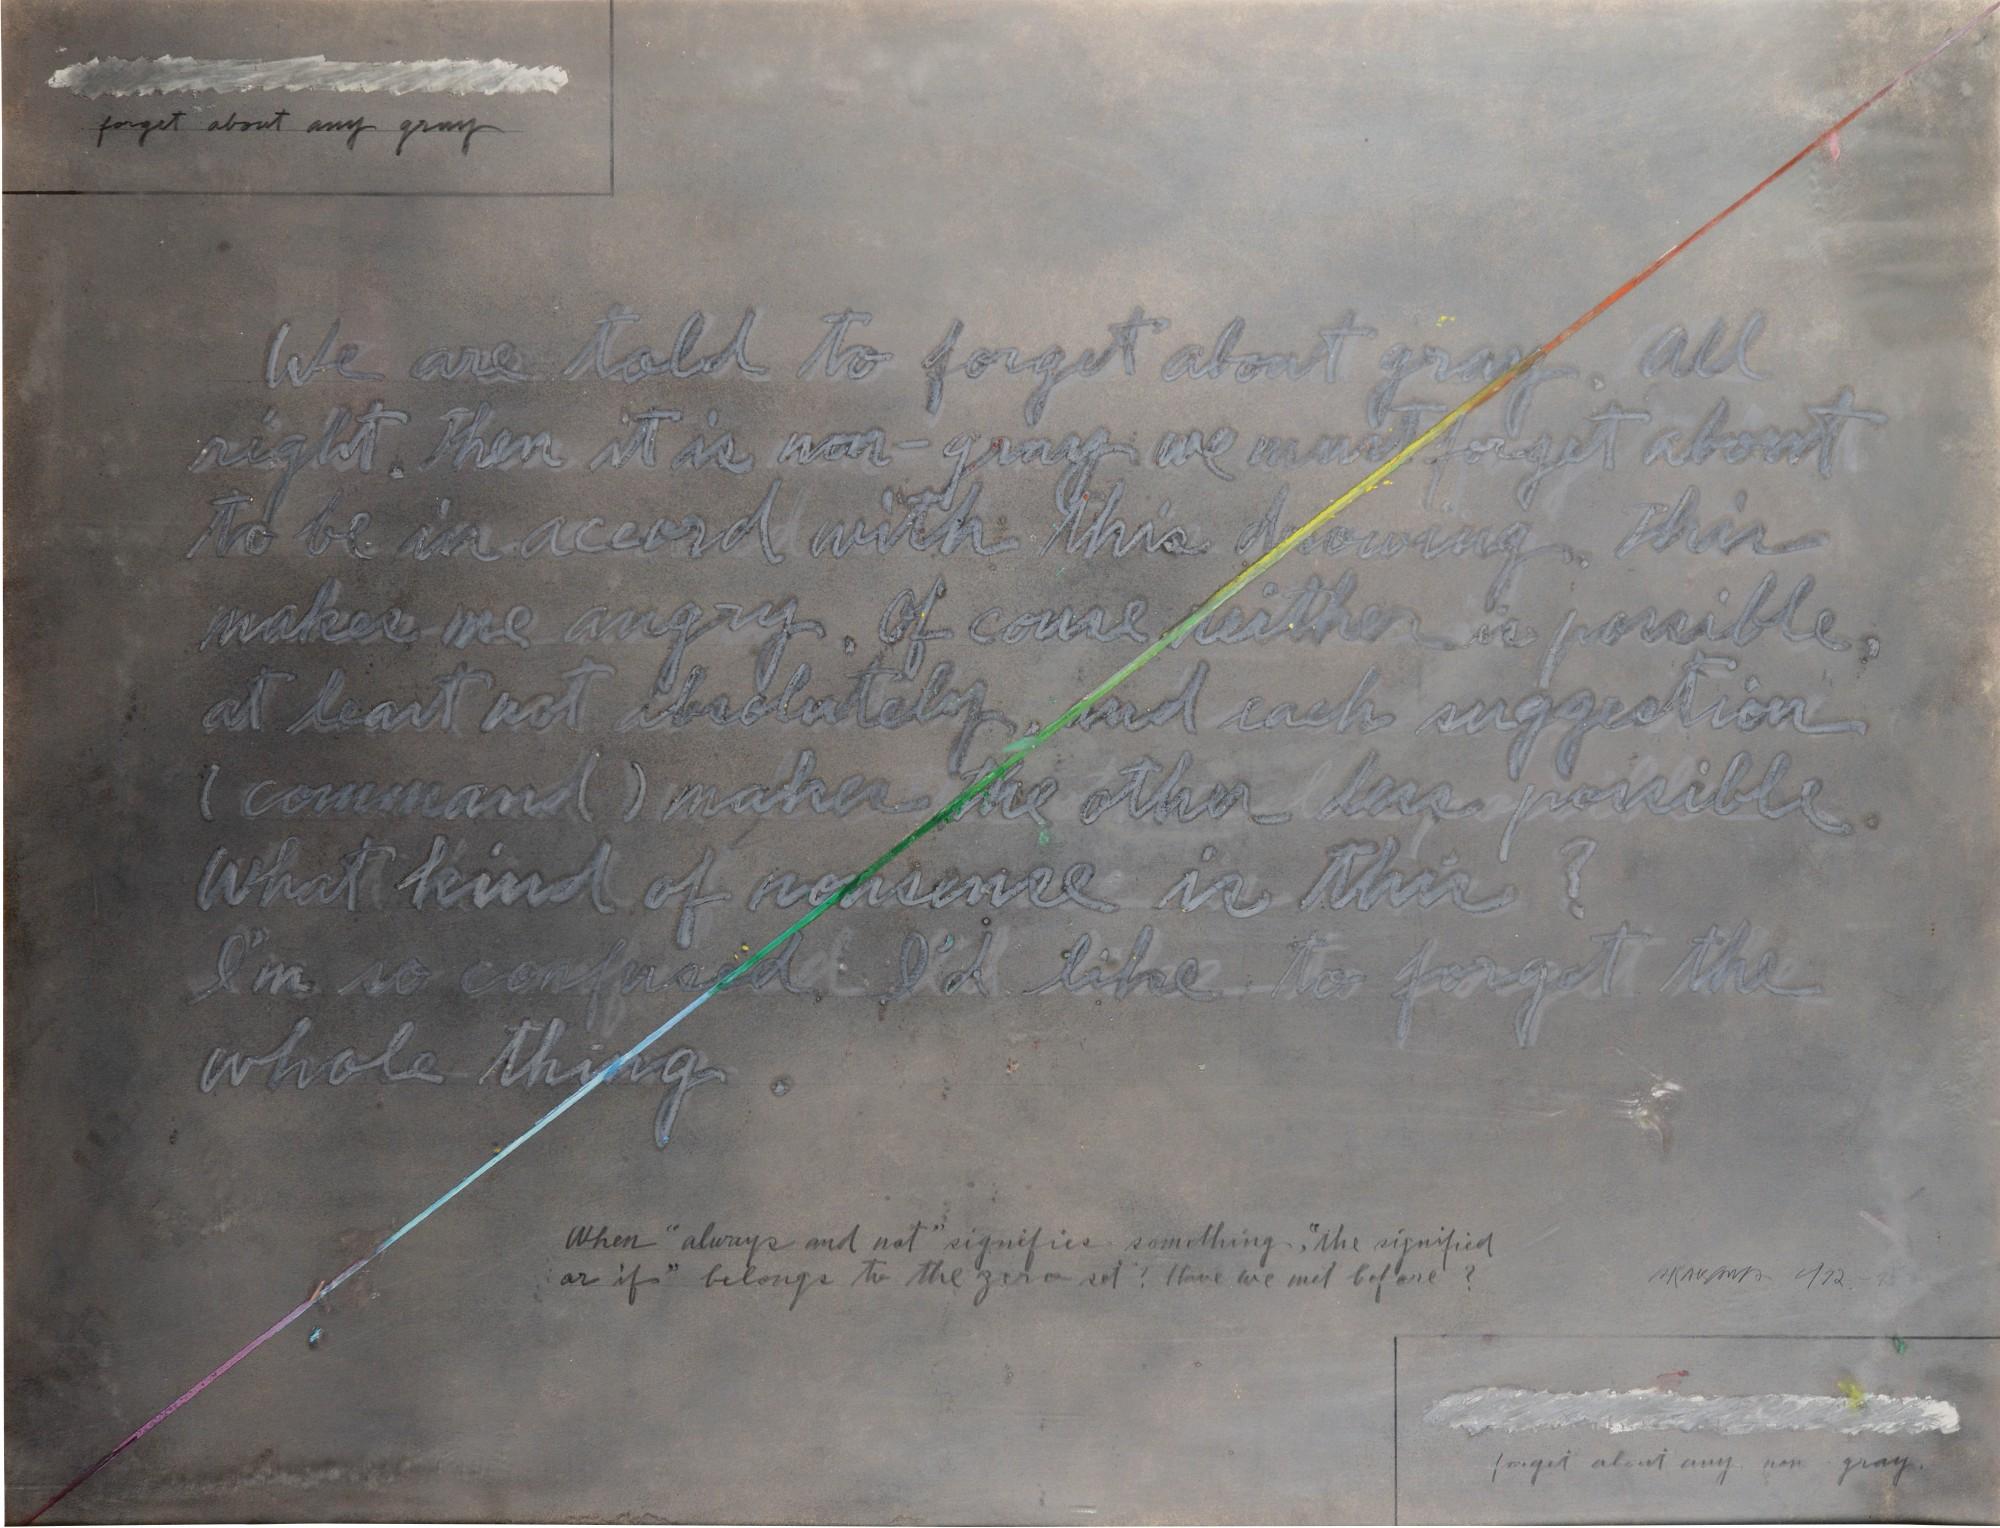 forget about any gray
We are told to forget about gray. All
right. Then it is non-gray we must forget about
to be in accord with this drawing. This
makes me angry. Of course neither is possible,
at least not absolutely, and each suggestion
(command) makes the other less possible
What kind of nonsense is this?
I'm so confused I'd like to forget the
whole thing.
When "always and not" signifies something, "the signified
or if" belongs to the zero set! Have we met before?
forget about any non gray.